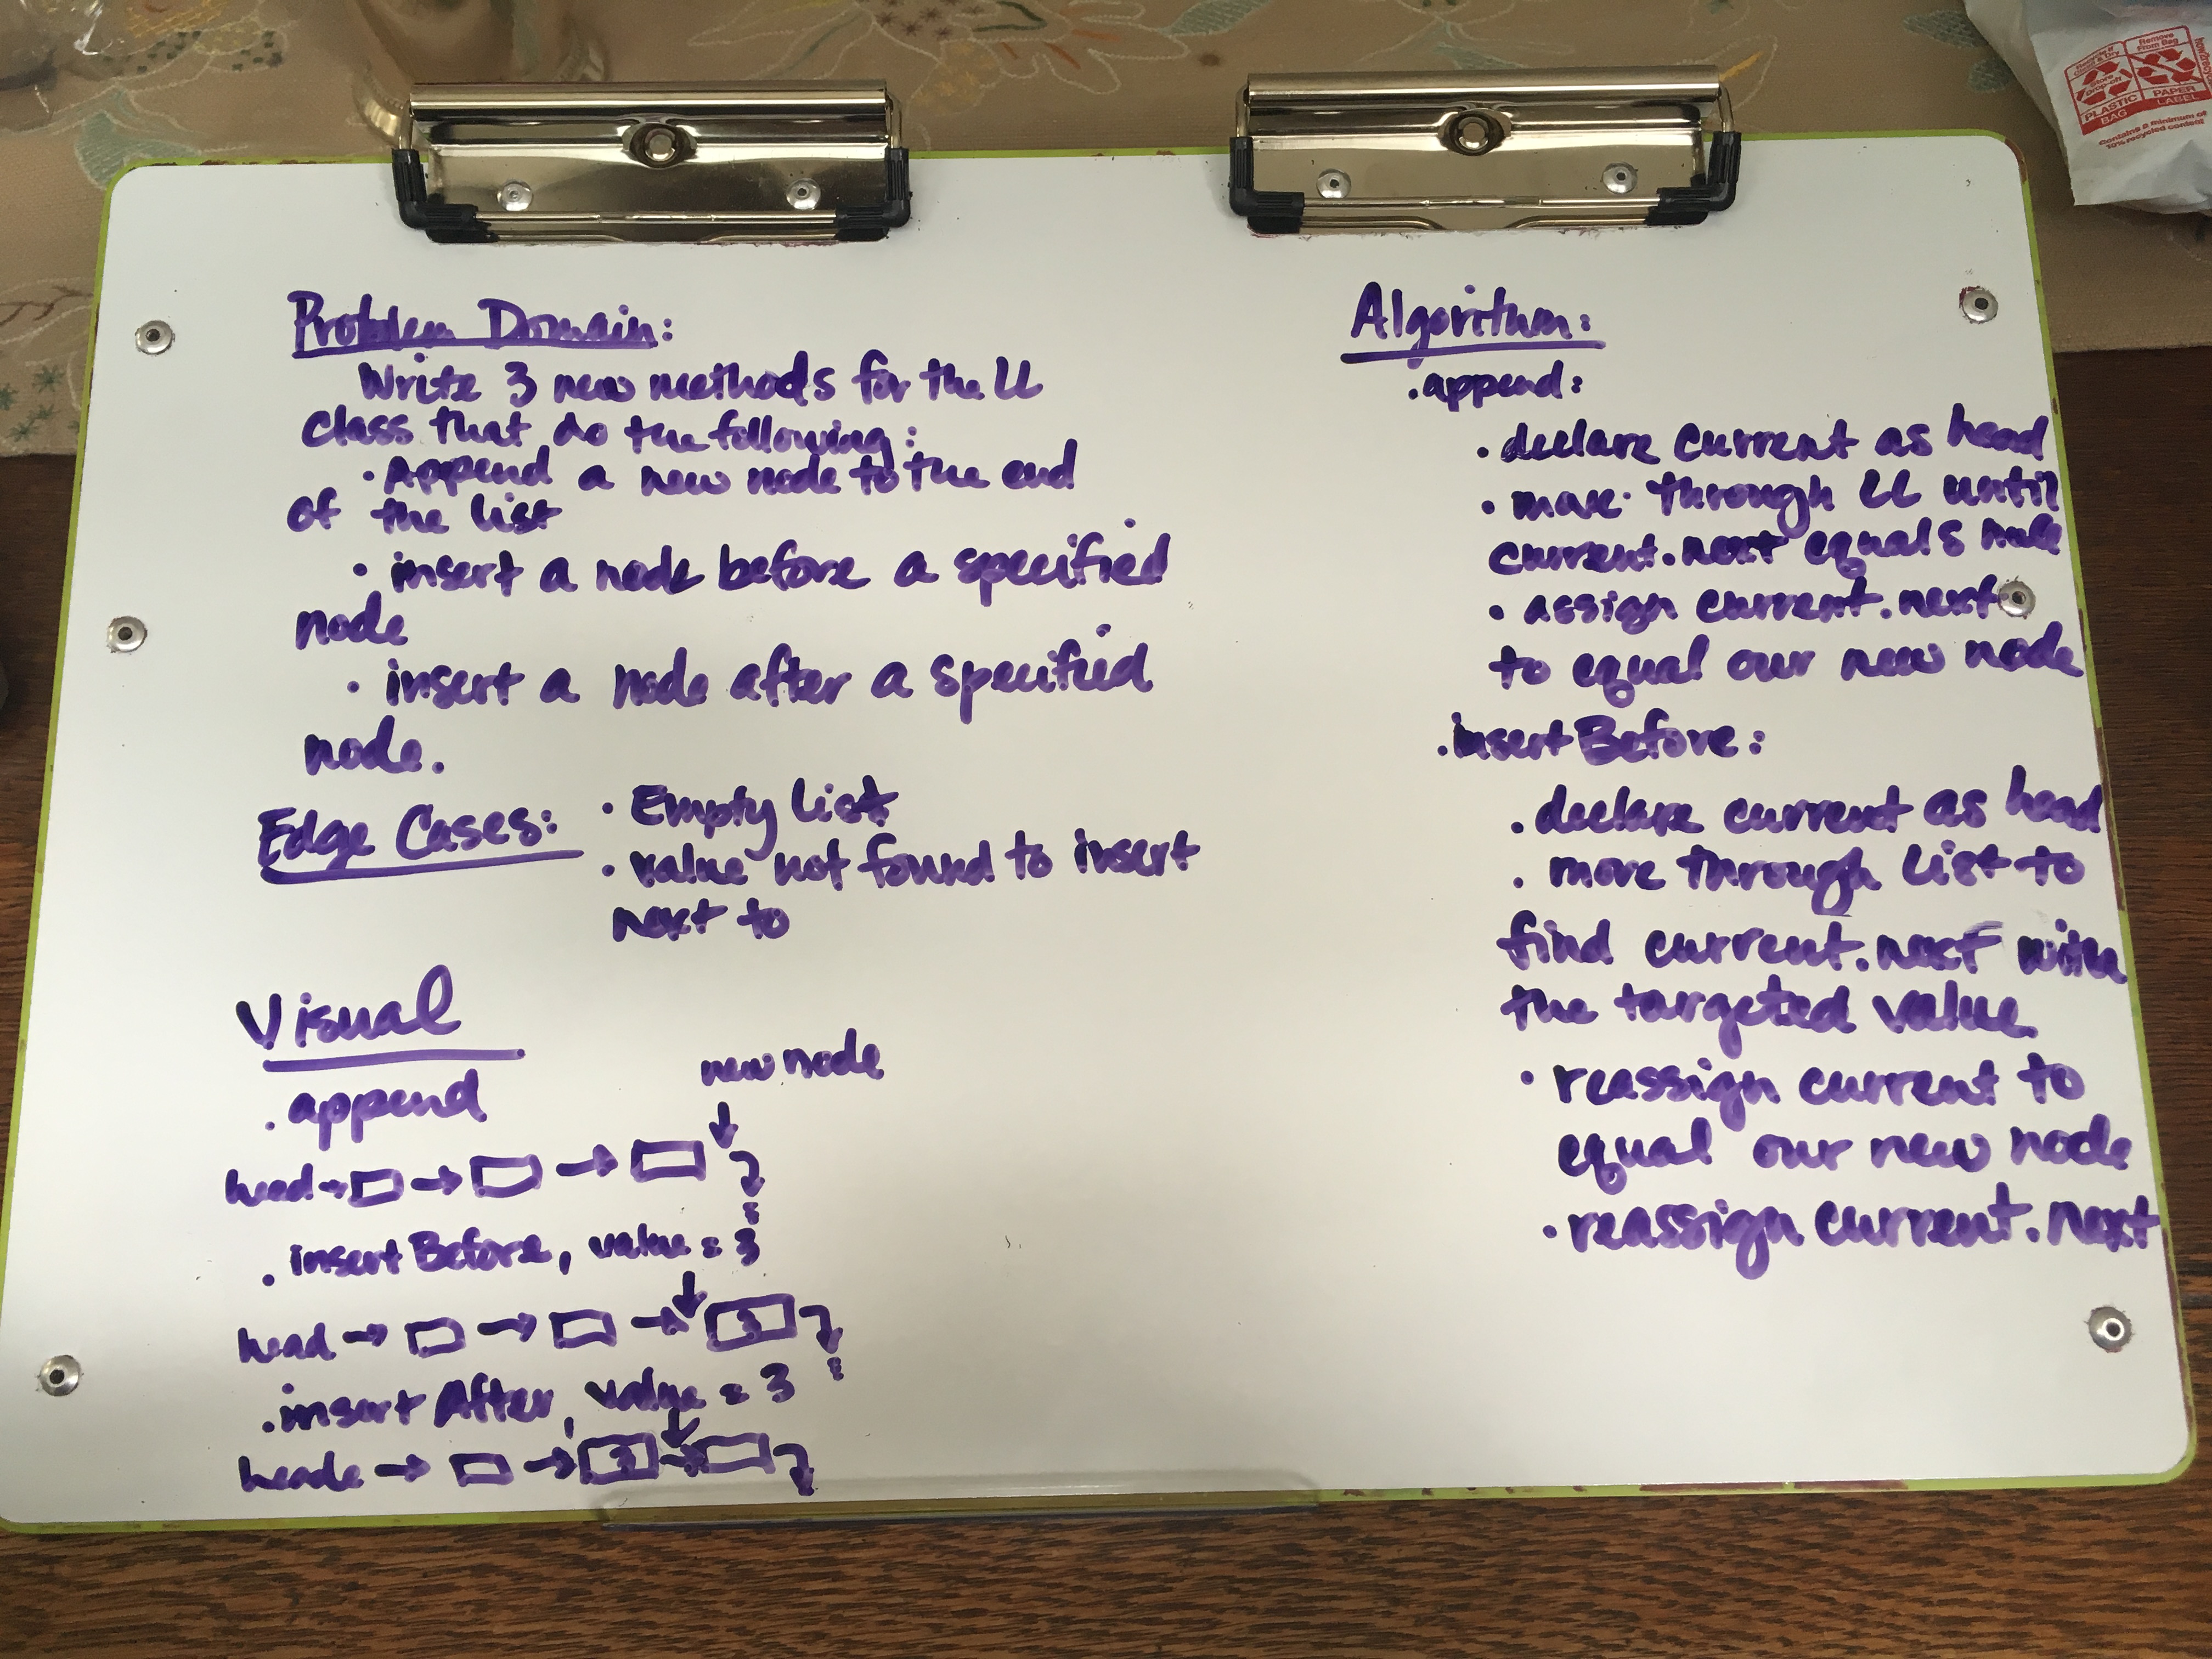 Problem Domain:
Write 3 new methods for the LL
class that do the following:
• Append a new node to the end
of the list
• insert a node before a specified
node
• insert a node after a specified
node.
Edge Cases:
• Empty List
• value not found to insert
next to
Visual
.append
new node
head
.insertBefore, value = 3
head
3
.insertAfter, value = 3
heade
3
Algorithm:
.append:
• declare current as head
• move through LL until
current.next equals null
• assign current.next
to equal our new node
.insertBefore:
• declare current as head
• move through list to
find current.next with
the targeted value
• reassign current to
equal our new node
• reassign current.next
Remove
From Bag
PLASTIC
BAG
PAPER
LABEL
Contains a minimum of
10% recycled content
how2recycle